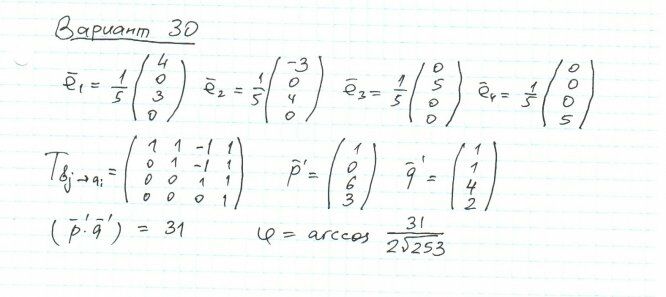 Вариант 30
ē₁ = 1/5 (4 0 3 0) ē₂ = 1/5 (-3 0 4 0) ē₃ = 1/5 (0 5 0 0) ē₄ = 1/5 (0 0 0 5)
T_{bj→ai} = (1 1 -1 1; 0 1 -1 1; 0 0 1 1; 0 0 0 1) p̄' = (1 0 6 3) q̄' = (1 1 4 2)
(p̄'·q̄') = 31 φ = arccos 31/(2√253)